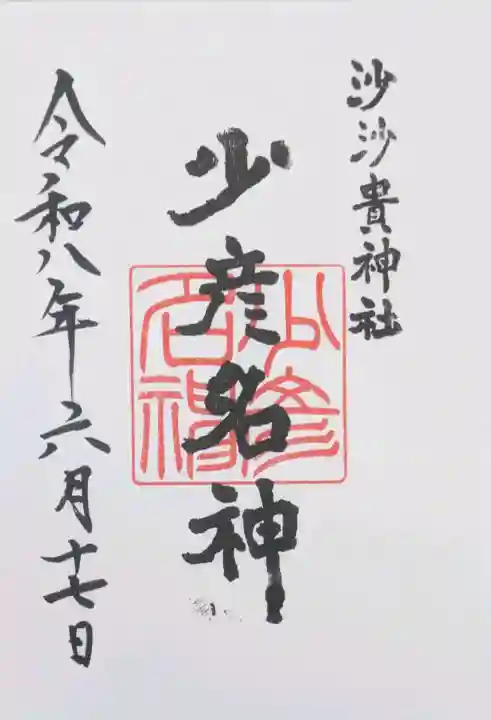 沙沙貴神社
少彦名神
少彦名神
令和八年六月十七日